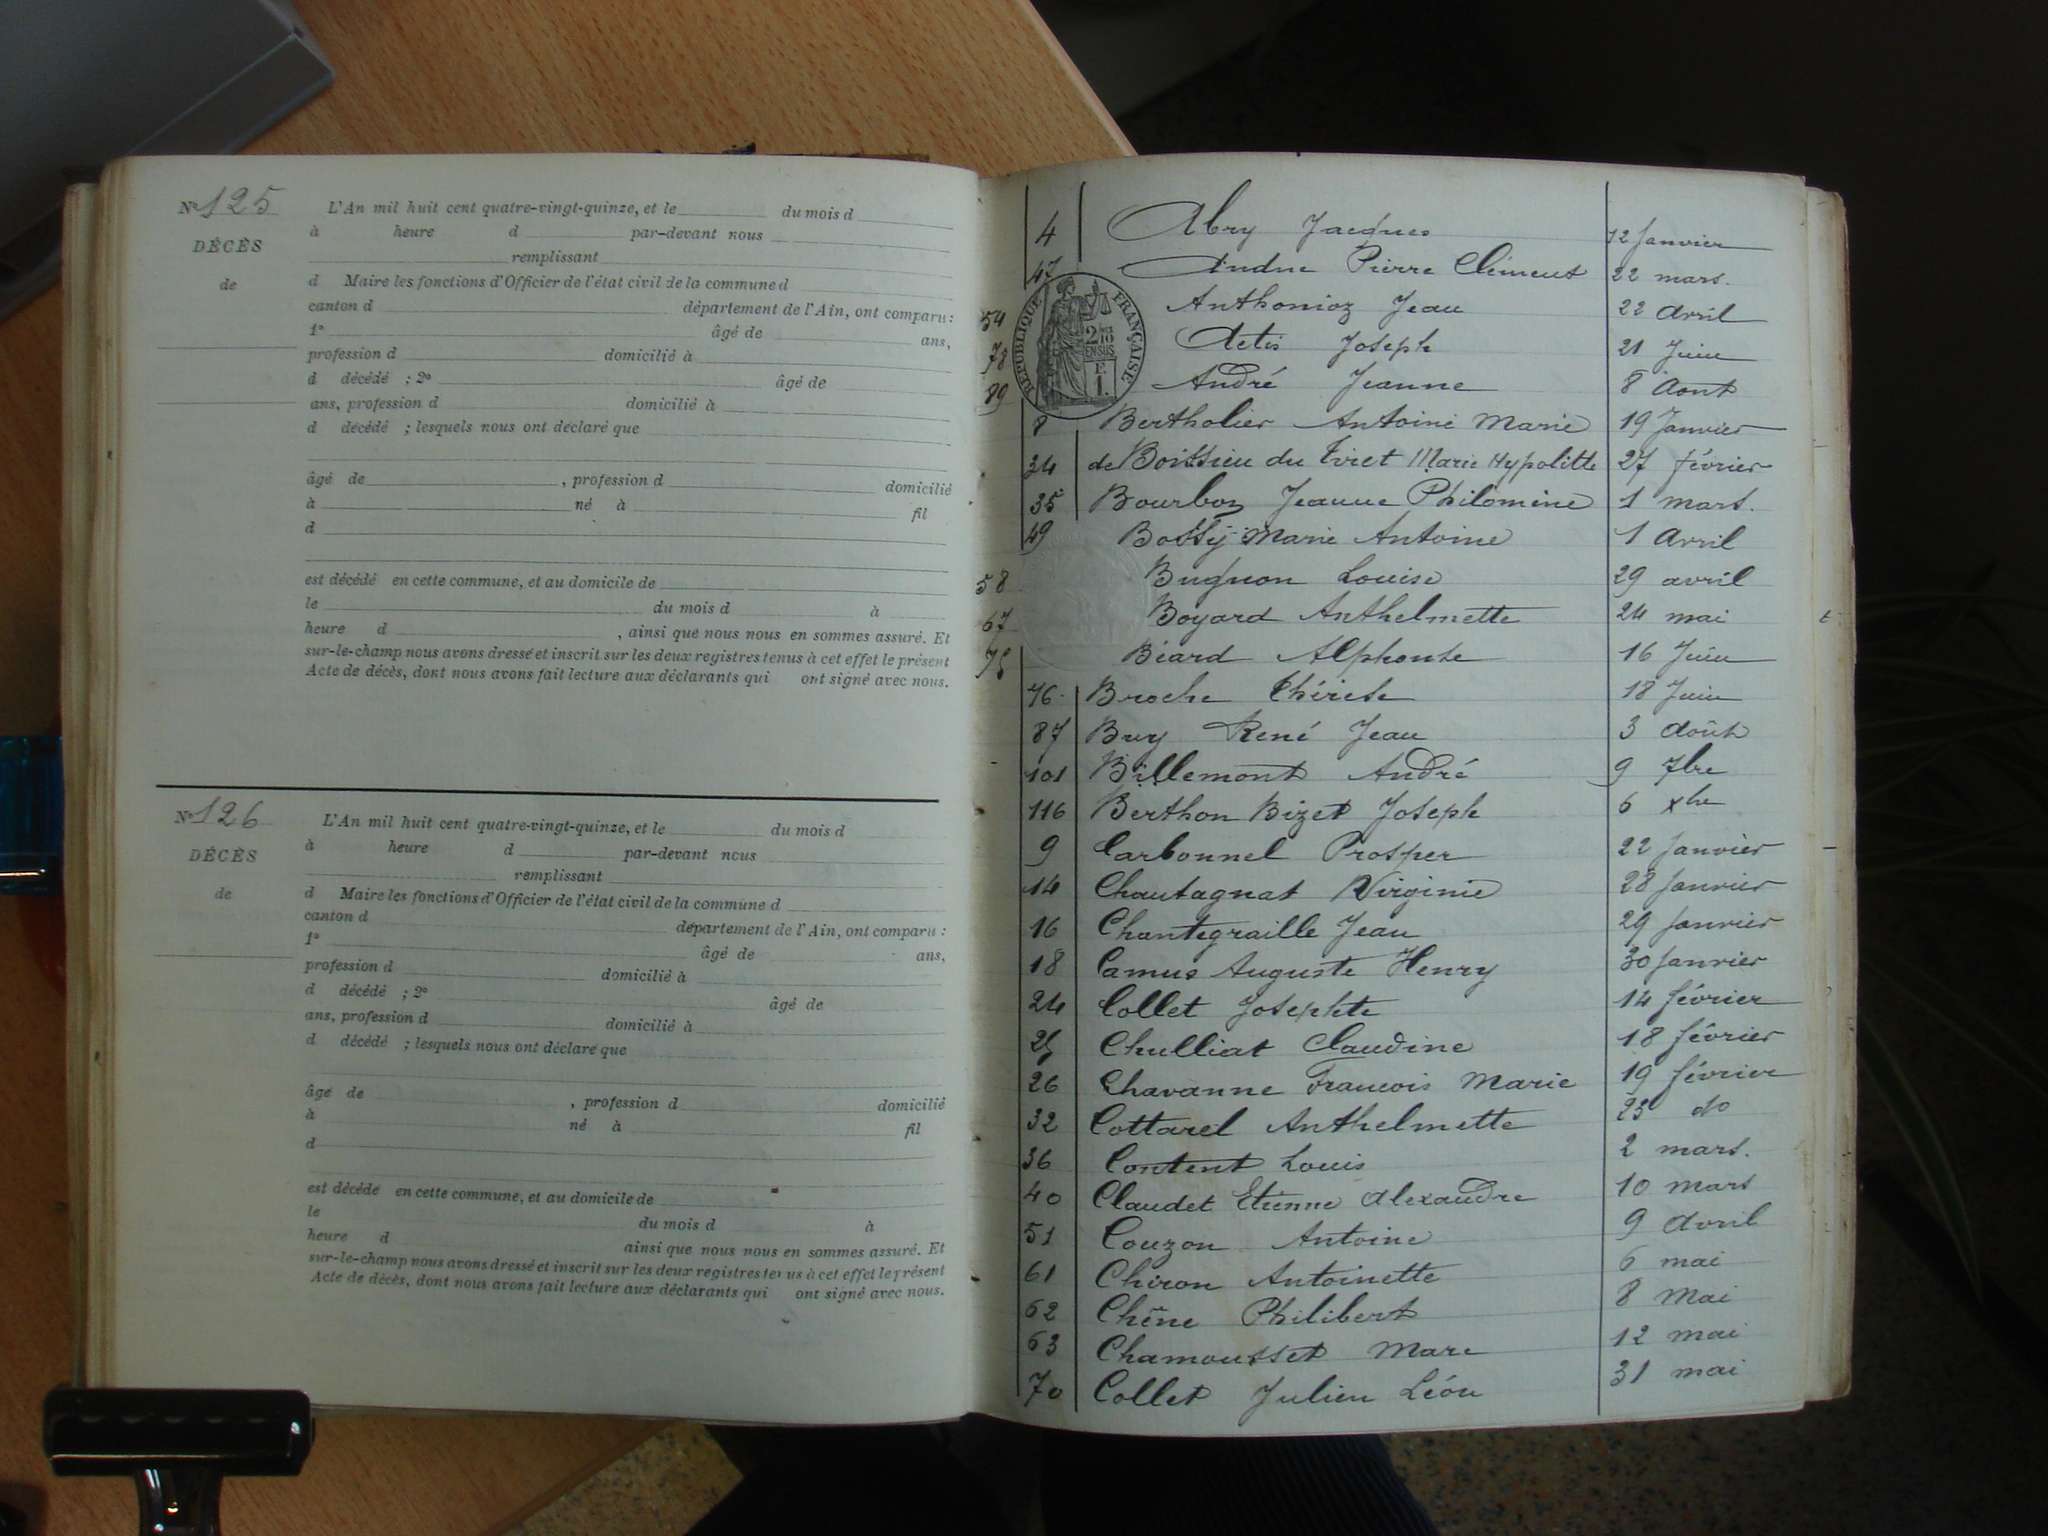 No 125 L'An mil huit cent quatre-vingt-quinze, et le du mois d
DÉCÈS à heure d par-devant nous
remplissant
de d Maire les fonctions d'Officier de l'état civil de la commune d
canton d département de l'Ain, ont comparu :
1o âgé de ans,
profession d domicilié à
d décédé ; 2o âgé de
ans, profession d domicilié à
d décédé ; lesquels nous ont déclaré que
âgé de , profession d domicilié
à né à fil
d
est décédé en cette commune, et au domicile de
le du mois d à
heure d , ainsi que nous nous en sommes assuré. Et
sur-le-champ nous avons dressé et inscrit sur les deux registres tenus à cet effet le présent
Acte de décès, dont nous avons fait lecture aux déclarants qui ont signé avec nous.
No 126 L'An mil huit cent quatre-vingt-quinze, et le du mois d
DÉCÈS à heure d par-devant nous
remplissant
de d Maire les fonctions d'Officier de l'état civil de la commune d
canton d département de l'Ain, ont comparu :
1o âgé de ans,
profession d domicilié à
d décédé ; 2o âgé de
ans, profession d domicilié à
d décédé ; lesquels nous ont déclaré que
âgé de , profession d domicilié
à né à fil
d
est décédé en cette commune, et au domicile de
le du mois d à
heure d ainsi que nous nous en sommes assuré. Et
sur-le-champ nous avons dressé et inscrit sur les deux registres tenus à cet effet le présent
Acte de décès, dont nous avons fait lecture aux déclarants qui ont signé avec nous.
4 Abry Jacques 12 Janvier
47 Pierre Clément 22 mars.
54 Anthonioz Jean 22 Avril
78 Actis Joseph 21 Juin
89 André Jeanne 8 Aout
RÉPUBLIQUE FRANÇAISE
8 Bertholier Antoine Marie 19 Janvier
34 de Boissieu du Tiret Marie Hypolitte 27 février
35 Bourbon Jeanne Philomine 1 mars.
49 Bossy Marie Antoine 1 Avril
58 Bugnon Louise 29 avril
67 Boyard Anthelmette 24 mai
75 Béard Alphonse 16 Juin
76 Broche Thérèse 18 Juin
87 Buy René Jean 3 Août
101 Billemont André 9 7bre
116 Berthon Bizet Joseph 6 xbre
9 Carbonnel Prosper 22 Janvier
14 Chautagnat Virginie 28 Janvier
16 Chantegraille Jean 29 Janvier
18 Camus Auguste Henry 30 Janvier
24 Collet Josephte 14 février
25 Chulliat Claudine 18 février
26 Chavanne Francois Marie 19 février
32 Cottarel Anthelmette 23 do
36 Content Louis 2 mars.
40 Claudet Etienne Alexandre 10 mars
51 Couzon Antoine 9 Avril
61 Chiron Antoinette 6 mai
62 Chêne Philibert 8 Mai
63 Chamousset Marc 12 mai
70 Collet Julien Léon 31 mai